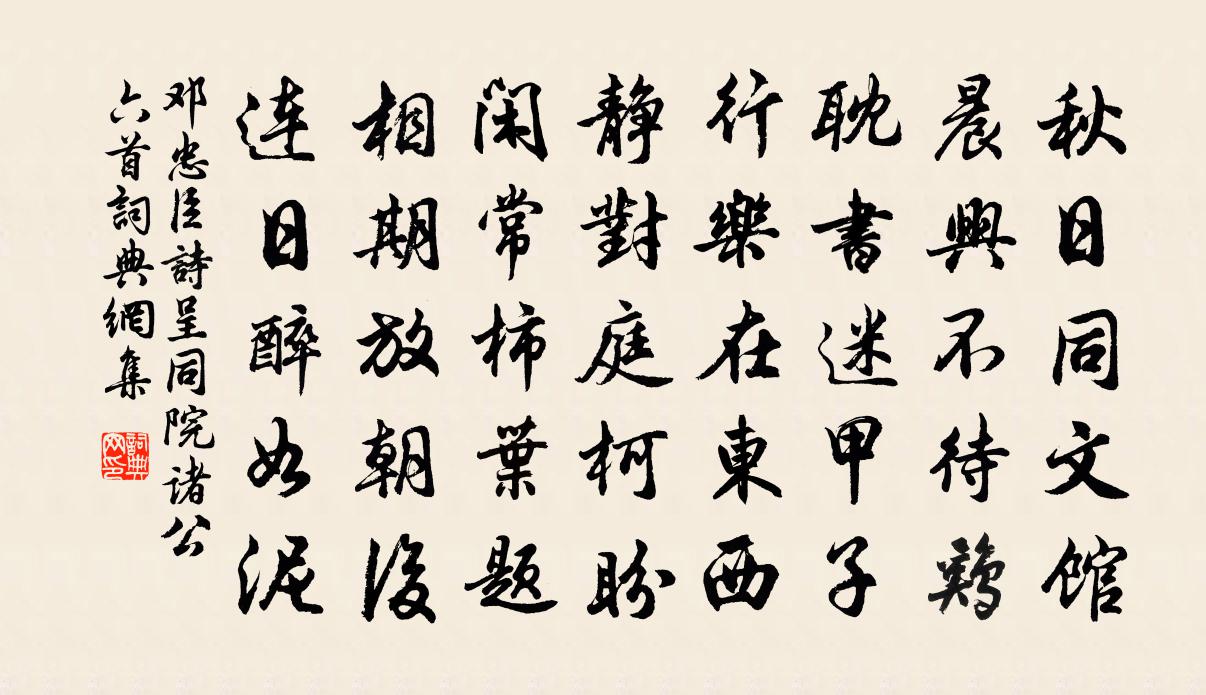 秋日同文馆
晨興不待鷄
耽書迷甲子
行樂在東西
静對庭柯盼
闲常柿葉題
相期放朝後
连日醉如泥
邓忠臣詩呈同院诸公
六首詞典網集
詞典网印